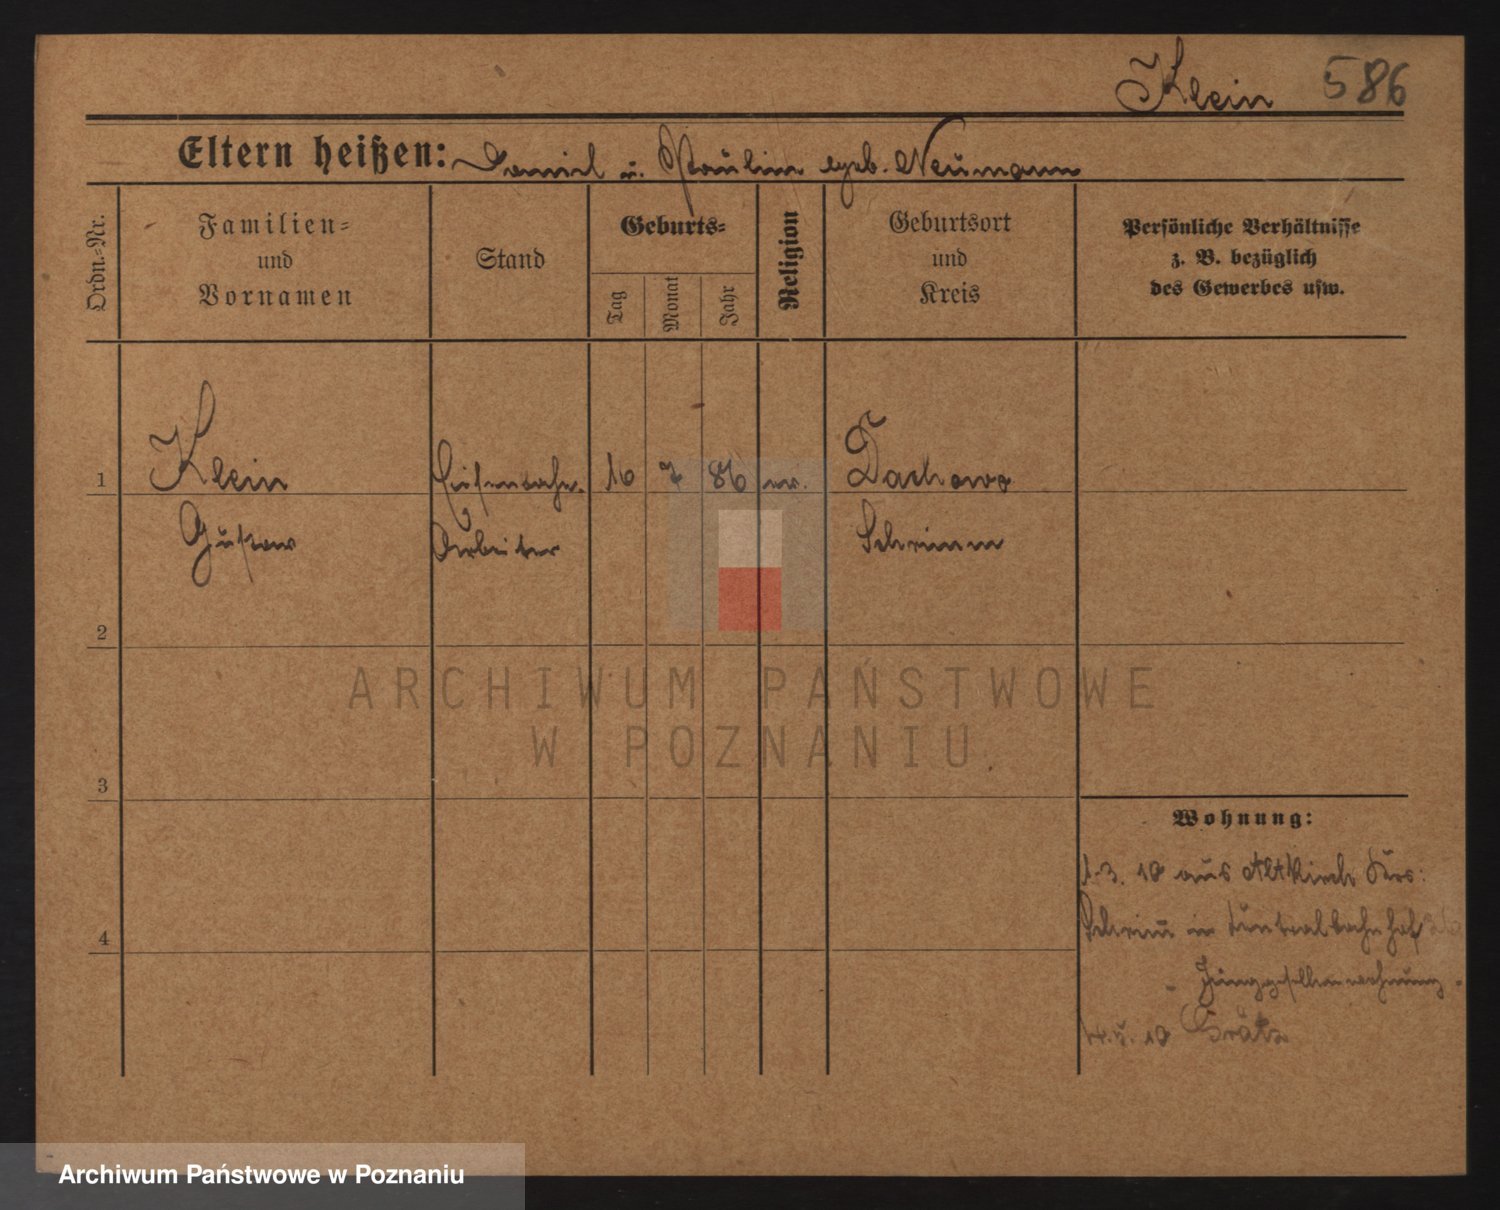 Klein 586
Eltern heißen: Daniel u. Paulin geb. Neumann
Ordn.-Nr.
Familien-
und
Vornamen
Stand
Geburts-
Tag
Monat
Jahr
Religion
Geburtsort
und
Kreis
Persönliche Verhältnisse
z. B. bezüglich
des Gewerbes usw.
1
Klein
Gustav
Eisenbahn-
Arbeiter
16 7 86 ev.
Dachowo
Schrimm
2
3
4
Wohnung:
1.3. 10 aus Altkirch
Schrim̅ in Centralbahnhof
- Junggesellenwohnung -
10 Grätz
ARCHIWUM PAŃSTWOWE
W POZNANIU
Archiwum Państwowe w Poznaniu